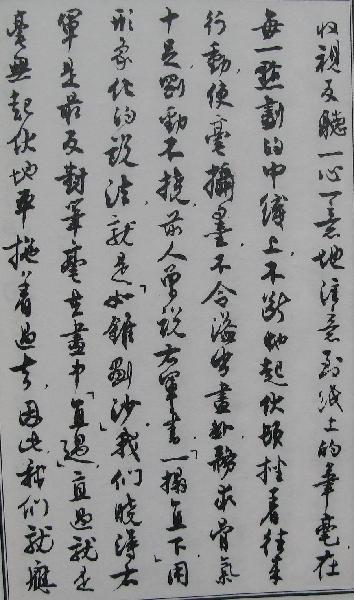 收視反聽一心一意地注意到紙上的筆毫在
每一點劃的中綫上不斷地起伏頓挫着往來
行動，使毫攝墨，不令溢出畫外，務求骨氣
十足，剛勁不撓。前人曾說右軍書「一搨直下」用
形象化的說法，就是「如錐劃沙」。我們曉得右
軍是最反對筆毫在畫中「直過」，直過就是
毫無起伏地平拖着過去，因此，我們就應